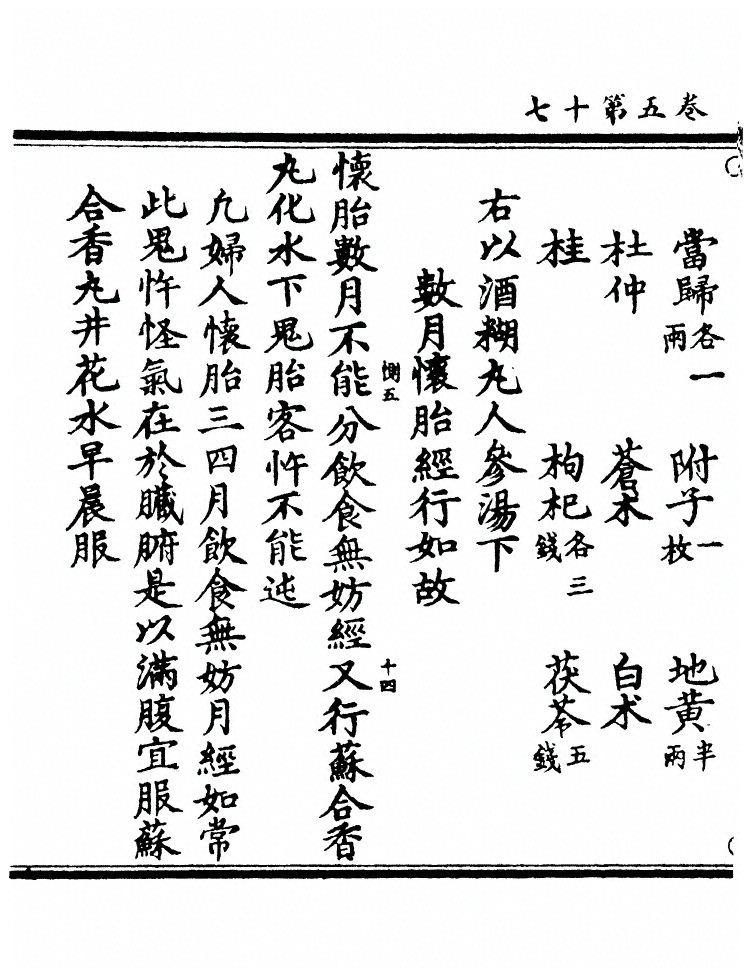 卷五第十七
當歸各一兩 附子一枚 地黃半兩
杜仲 蒼术 白术
桂 枸杞各三錢 茯苓五錢
右以酒糊丸人參湯下
數月懷胎經行如故
懷胎數月不能分飲食無妨經又行蘇合香
惻五 十四
丸化水下鬼胎客忤不能迯
凢婦人懷胎三四月飲食無妨月經如常
此鬼忤怪氣在於臟腑是以滿腹宜服蘇
合香丸井花水早晨服